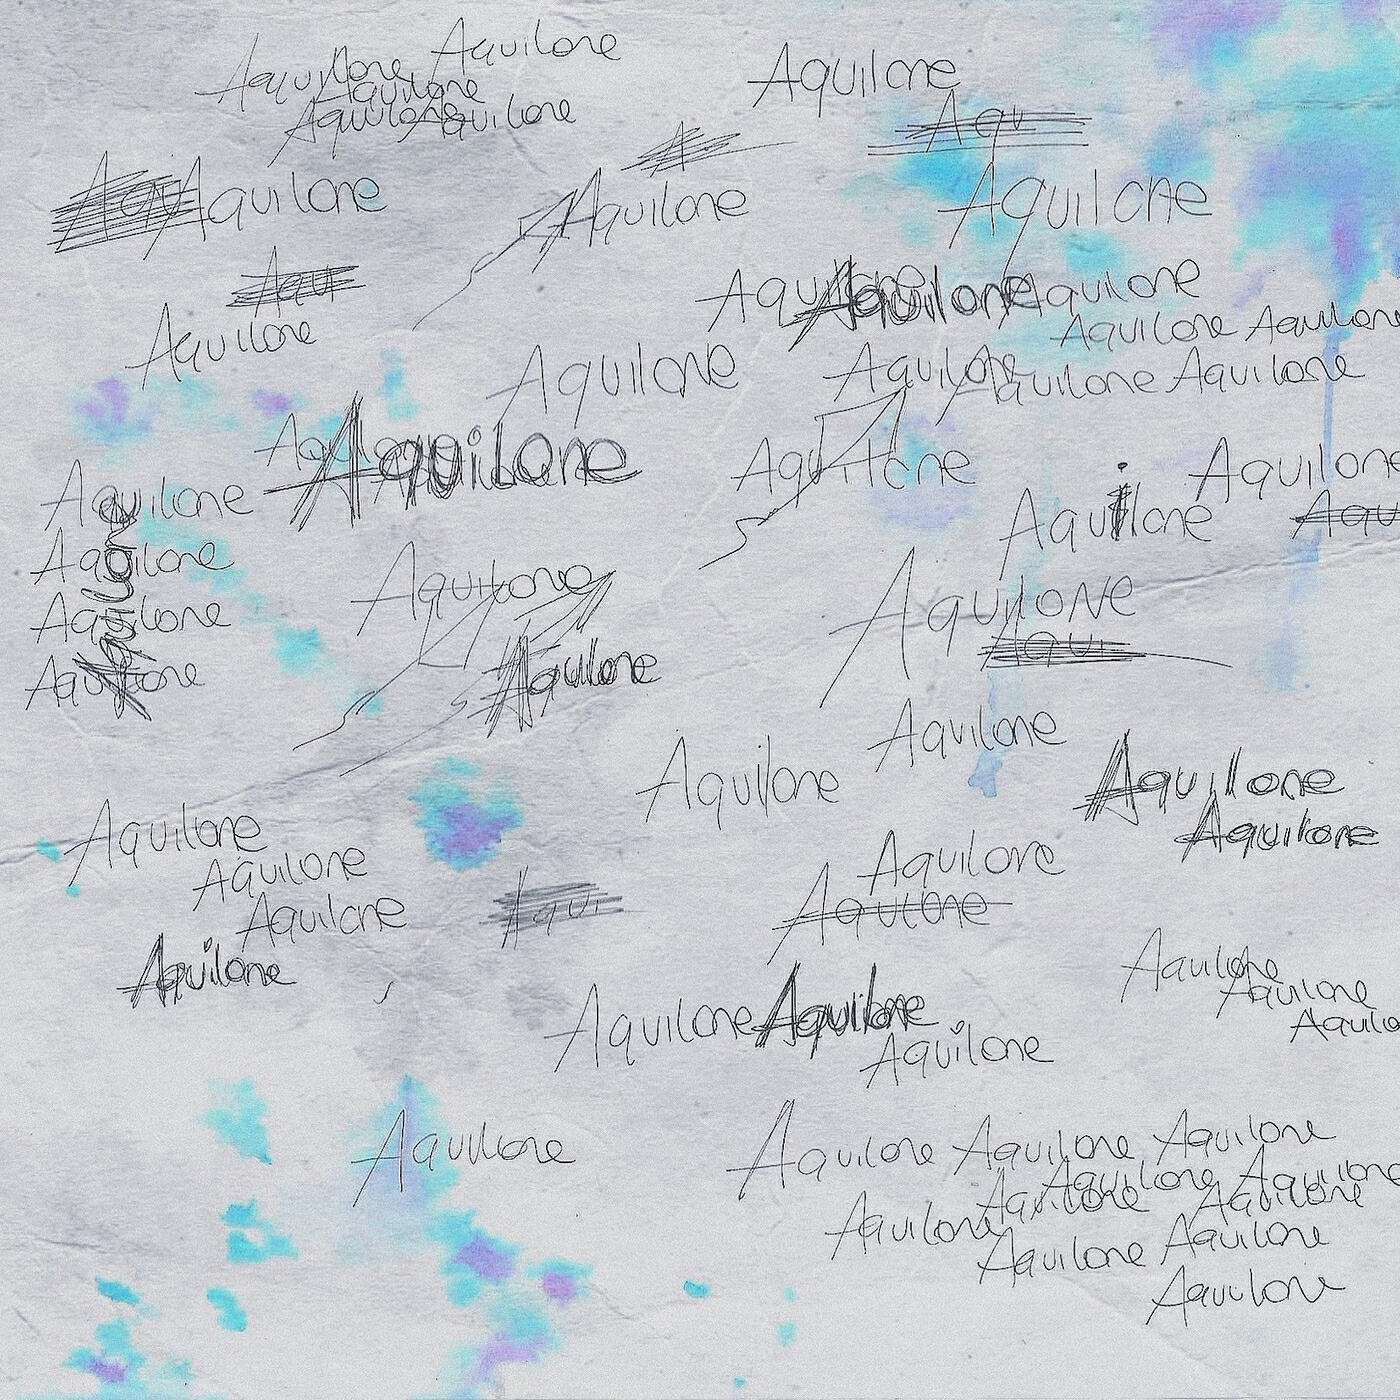 Aquilone
Aquilone
Aquilone
Aquilone Aquilone
Aquilone
Aqu
A
Aqu Aquilone
Aquilone
Aquilone
Aqui
Aquilone
Aquilone Aquilone Aquilone
Aquilone Aquilone
Aquilone Aquilone Aquilone
Aquilone
Aquilone Aquilone
Aquilone
Aquilone
Aquilone
Aquilone
Aqu
Aquilone
Aquilone
Aquilone
Aquilone
Aquilone
Aquilone
Aquilone
Aquilone
Aqui
Aquilone
Aquilone
Aquilone
Aquilone
Aquilone
Aquilone
Aquilone
Aquilone
Aquilone
Aqui
Aquilone
Aquilone
Aquilone
Aquilone
Aquilo
Aquilone Aquilone
Aquilone
Aquilone
Aquilone Aquilone Aquilone
Aquilone Aquilone
Aquilone Aquilone
Aquilone
Aquilone Aquilone
Aquilone